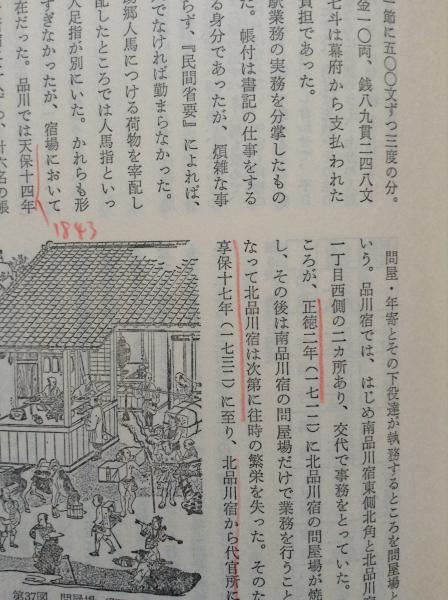 一節に五〇〇文ずつ三度の分。
金一〇両、銭八九貫二四八文
七斗は幕府から支払われた
負担であった。
駅業務の実務を分掌したもの
た。帳付は書記の仕事をする
る身分であったが、煩雑な事
らず、『民間省要』によれば、
でなければ勤まらなかった。
助郷人馬につける荷物を宰配し
配したところでは人馬指といっ
人足指が別にいた。かれらも形
すぎなかったが、宿場において
在だった。品川では天保十四年
1843
問屋・年寄とその下役達が執務するところを問屋場と
いう。品川宿では、はじめ南品川宿東側北角と北品川宿
一丁目西側の二カ所あり、交代で事務をとっていた。
ころが、正徳二年(一七一二)に北品川宿の問屋場が焼
し、その後は南品川宿の問屋場だけで業務を行うこと
なって北品川宿は次第に往時の繁栄を失った。そのた
享保十七年(一七三二)に至り、北品川宿から代官所に
第37図 問屋場